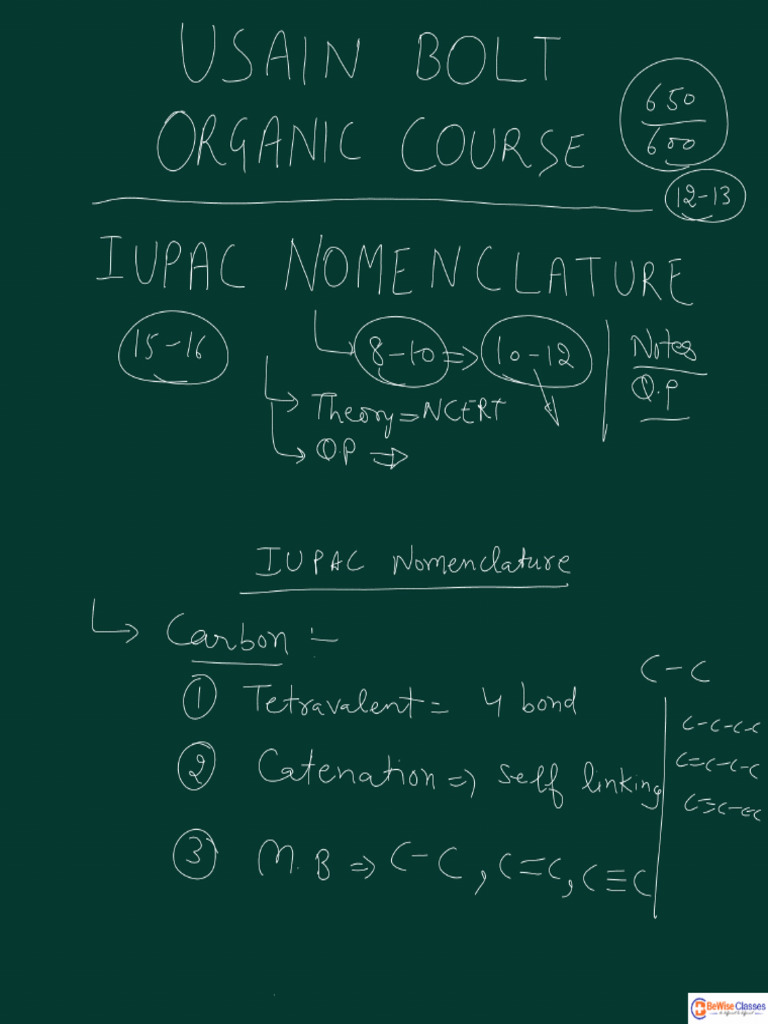 USAIN BOLT
ORGANIC COURSE
650
600
12-13
IUPAC NOMENCLATURE
15-16
8-10 => 10-12
Notes
Q.P
Theory => NCERT
Q.P =>
IUPAC Nomenclature
Carbon :-
① Tetravalent = 4 bond
② Catenation => self linking
③ M.B => C-C, C=C, C≡C
C-C
C-C-C-C
C=C-C-C
BeWise Classes